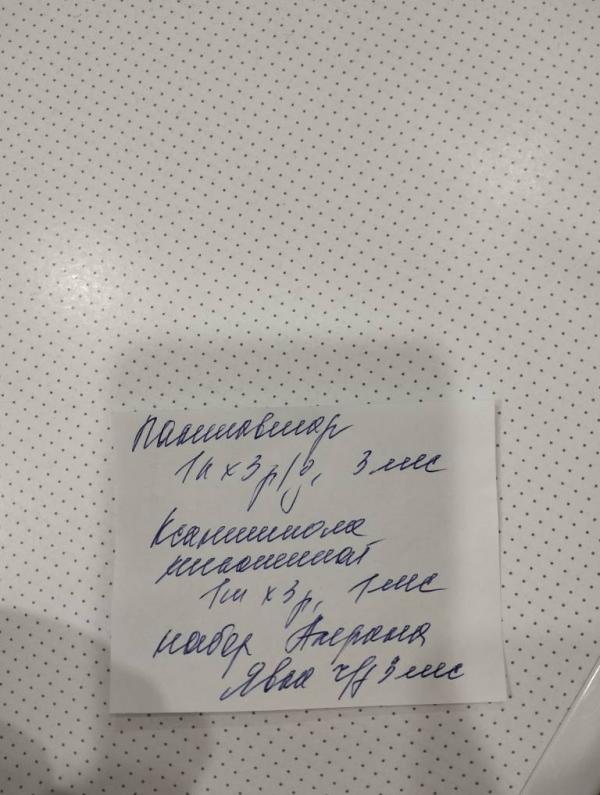 Пантовигар
1к х 3 р/д, 3 мес
Ксантинола
никотинат
1т х 3р, 1 мес
набор Алерана
Явка ч/з 3 мес